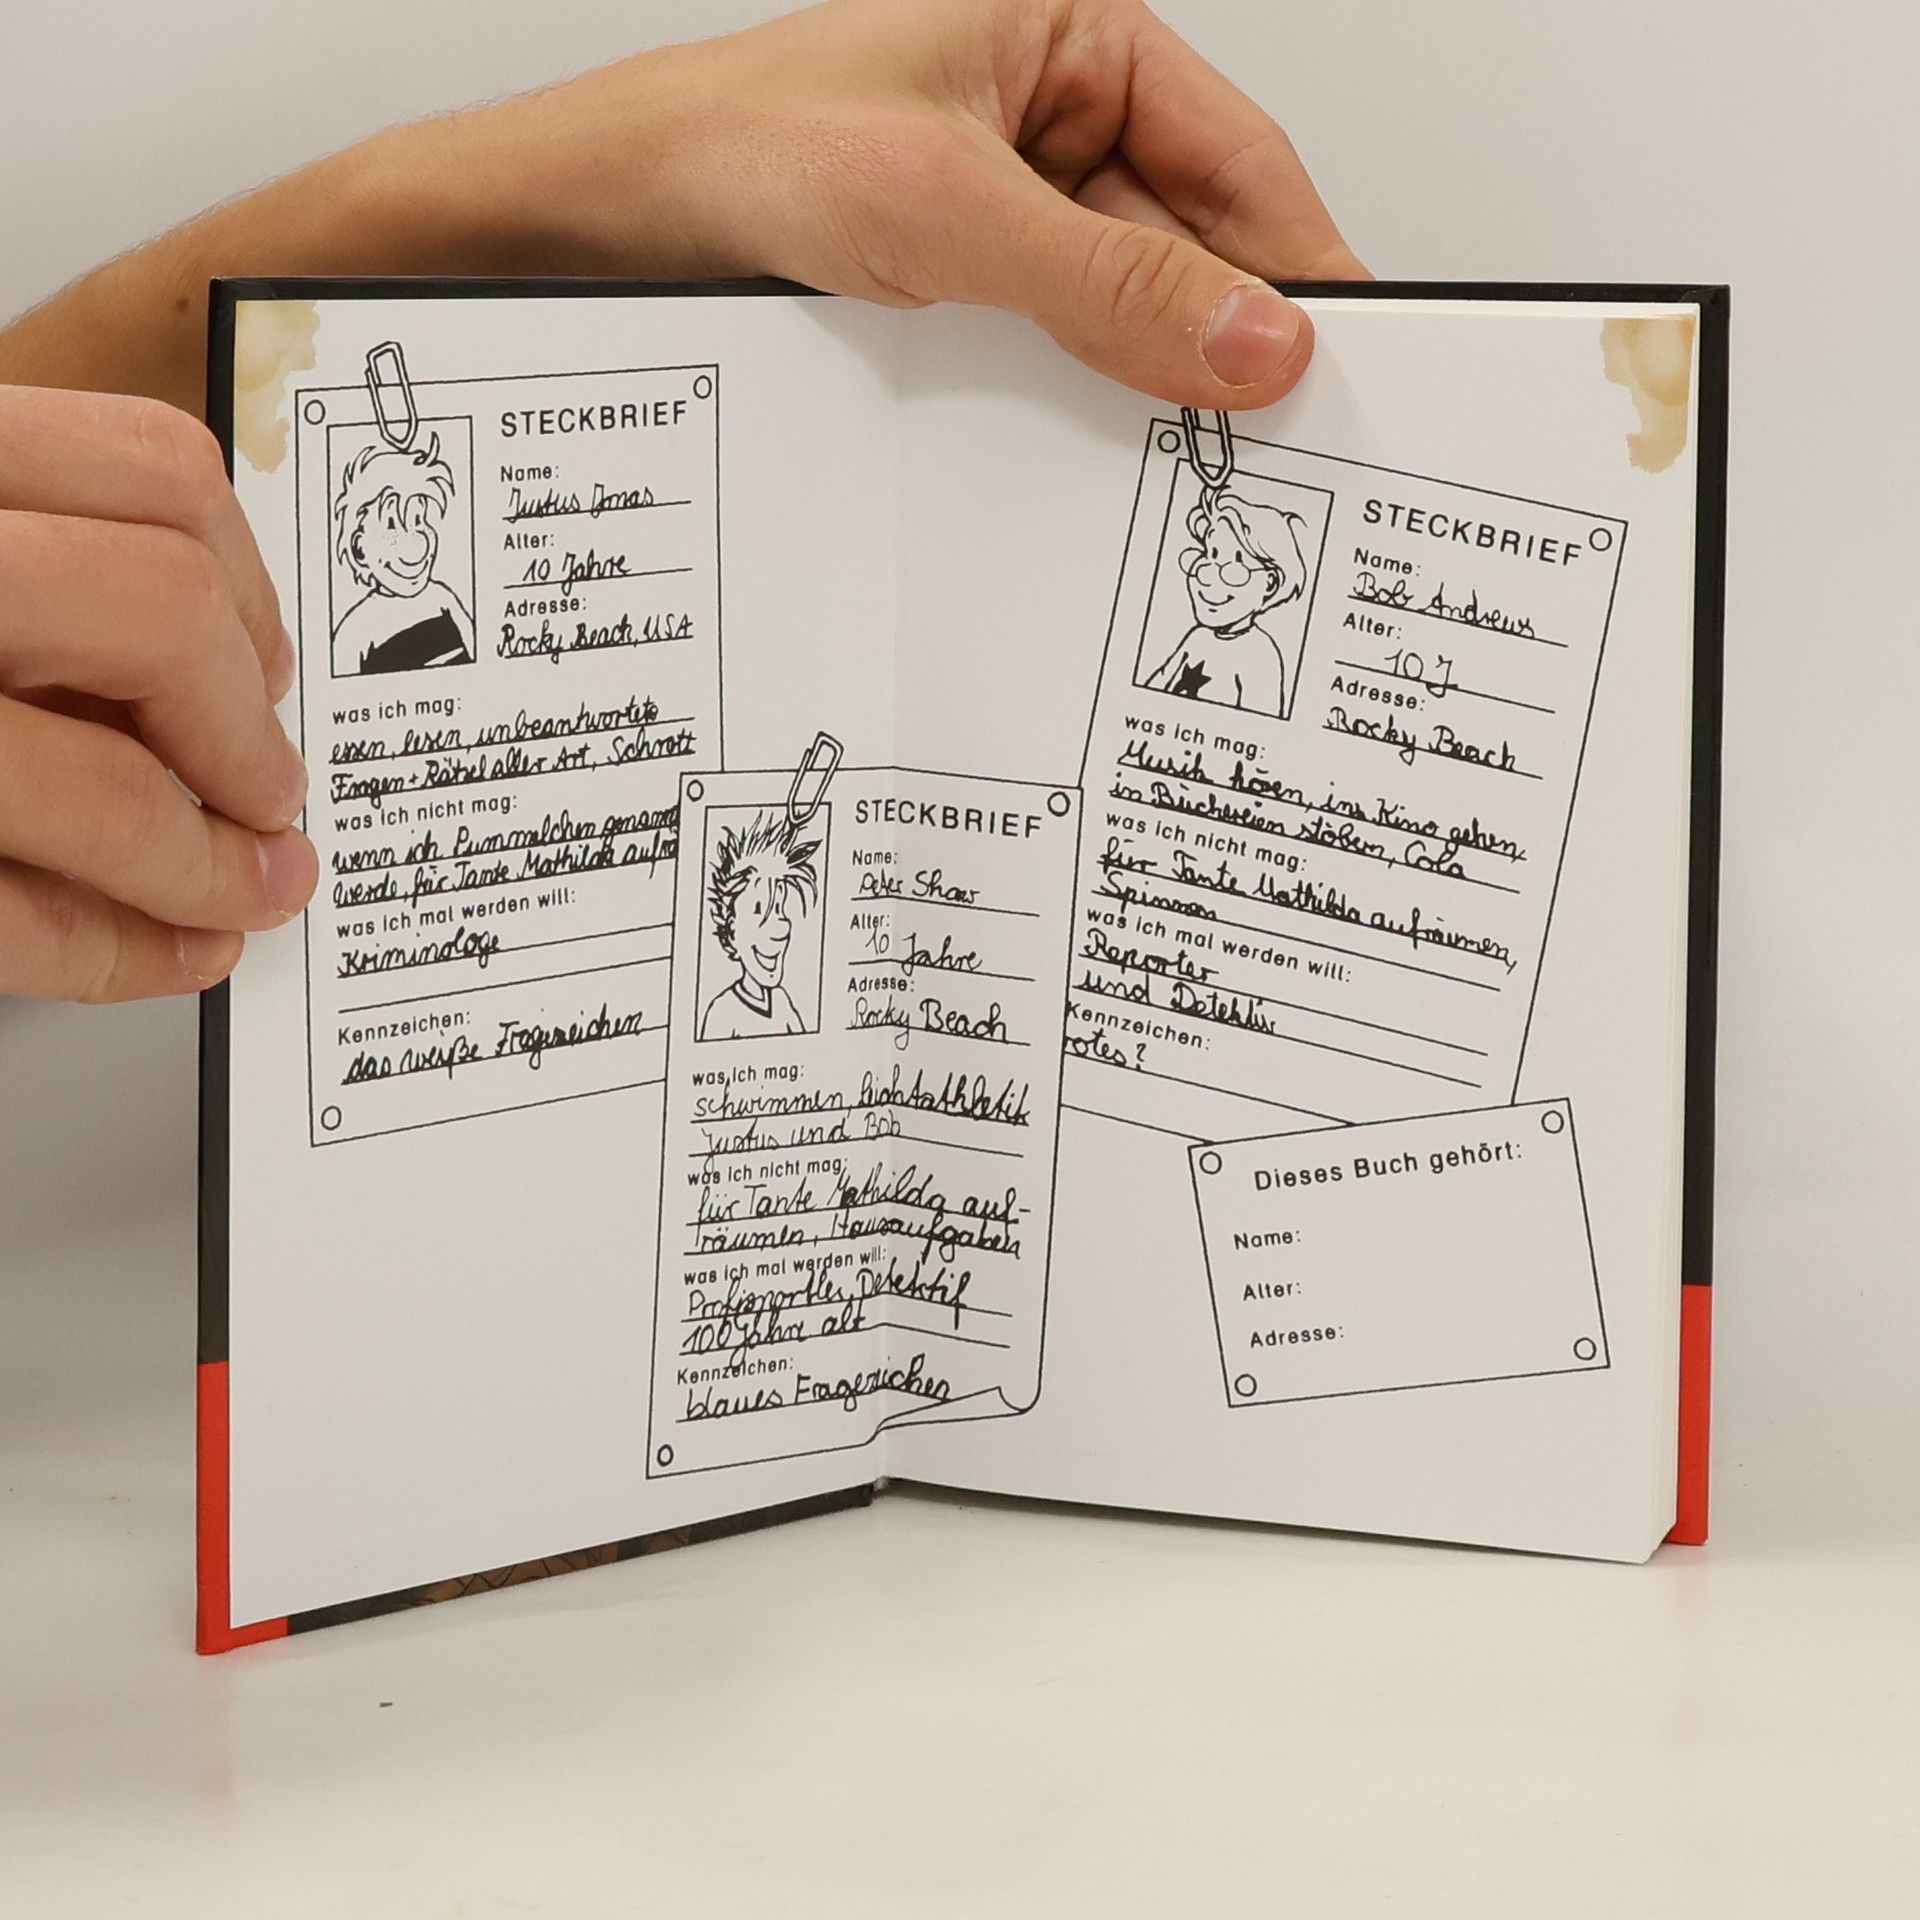 STECKBRIEF
Name:
Justus Jonas
Alter:
10 Jahre
Adresse:
Rocky Beach, USA
was ich mag:
essen, lesen, unbeantwortete
Fragen + Rätsel aller Art, Schrott
was ich nicht mag:
wenn ich Pummelchen genannt
werde, für Tante Mathilda aufrä
was ich mal werden will:
Kriminologe
Kennzeichen:
das weiße Fragezeichen
STECKBRIEF
Name:
Peter Shaw
Alter:
10 Jahre
Adresse:
Rocky Beach
was ich mag:
schwimmen, Leichtathletik
Justus und Bob
was ich nicht mag:
für Tante Mathilda auf-
räumen, Hausaufgaben
was ich mal werden will:
Profisportler, Detektif
100 Jahre alt
Kennzeichen:
blaues Fragezeichen
STECKBRIEF
Name:
Bob Andrews
Alter:
10 J
Adresse:
Rocky Beach
was ich mag:
Musik hören, ins Kino gehen,
in Büchereien stöbern, Cola
was ich nicht mag:
für Tante Mathilda aufräumen,
Spinnen
was ich mal werden will:
Reporter
und Detektiv
Kennzeichen:
rotes ?
Dieses Buch gehört:
Name:
Alter:
Adresse: